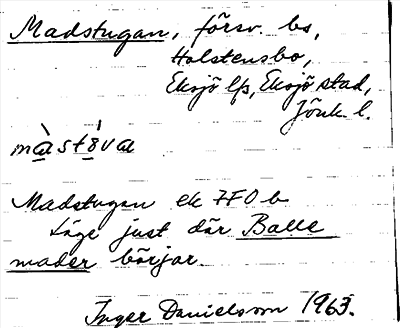 Madstugan, försv. bs,
Holstensbo,
Eksjö lfs, Eksjö stad,
Jönk. l.
màst8́va
Madstugan ek 7F0b
Läge just där Balle
mader börjar.
Inger Danielsson 1963.